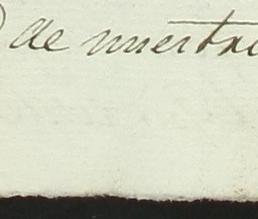 de nuestra